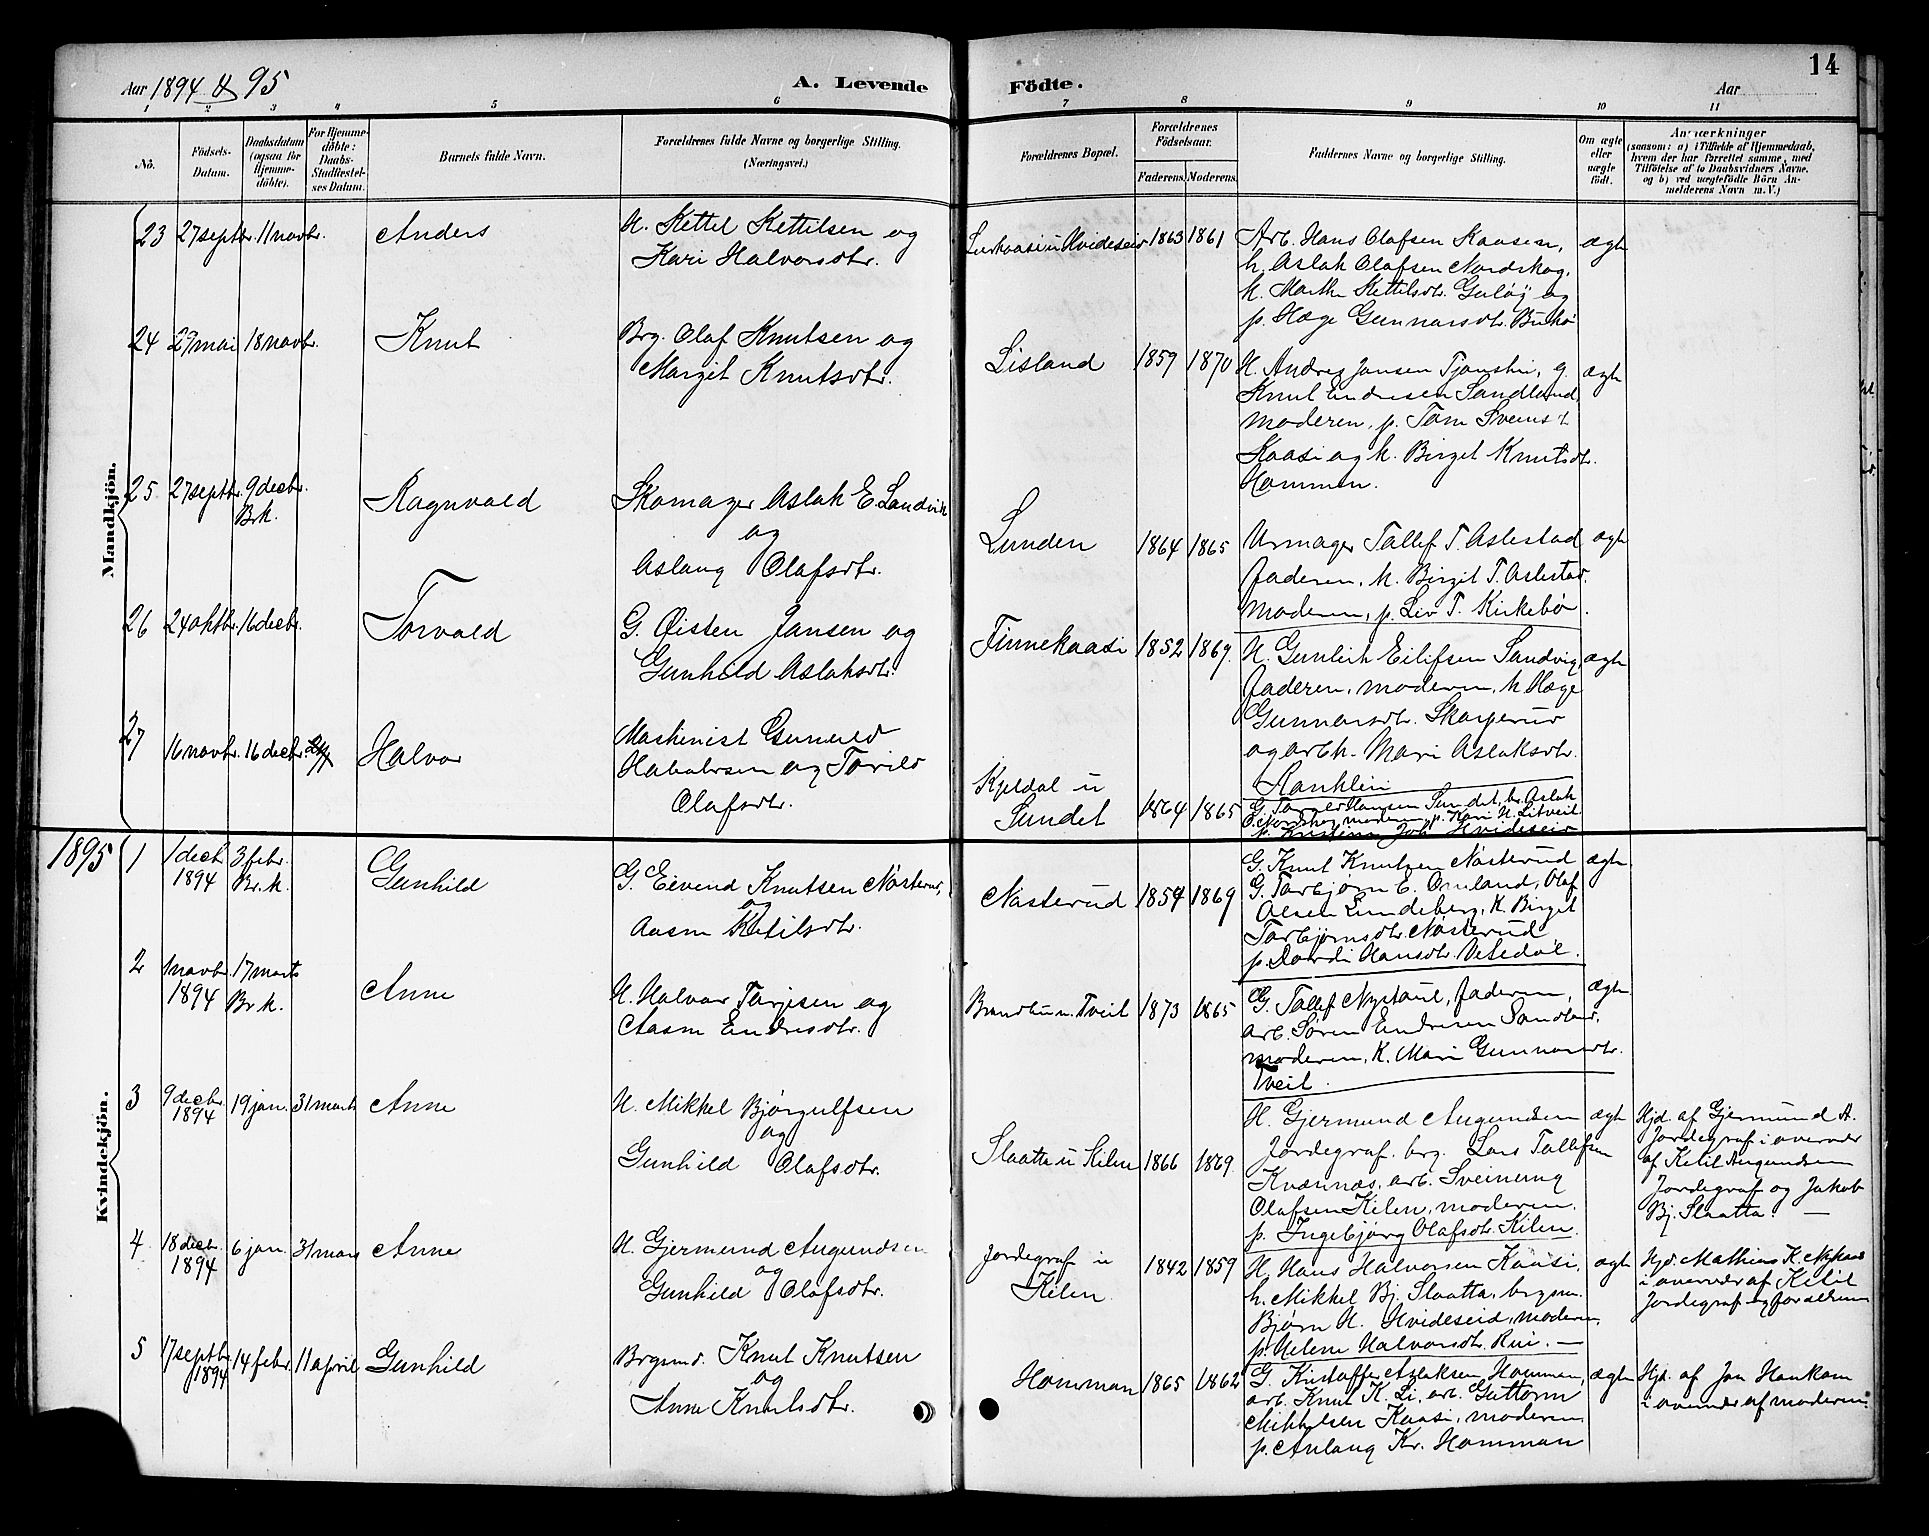 14
Aar 1894 & 95
A. Levende Födte.
Aar
1 2 3 4 5 6 7 8 9 10 11
No.
Födsels-
Datum.
Daabsdatum
(ogsaa for
Hjemme-
döbte).
For Hjemme-
döbte:
Daabs-
Stadfæstel-
ses Datum.
Barnets fulde Navn.
Forældrenes fulde Navne og borgerlige Stilling.
(Næringsvei.)
Forældrenes Bopæl.
Forældrenes
Födselsaar.
Faderens. Moderens.
Faddernes Navne og borgerlige Stilling.
Om ægte
eller
uægte
födt.
Anmærkninger
(saasom: a) i Tilfælde af Hjemmedaab,
hvem der har forrettet samme, med
Tilföielse af to Daabsvidners Navne.
og b) ved uægtefödte Börn An-
melderens Navn m. V.)
Mandkjön.
23 27 septbr. 11 novbr. Anders
H. Kettel Kettilsen og
Kari Halvorsdtr.
u Hvideseid 1863 1861
Arb. Hans Olafsen Kaasen,
h. Aslak Olafsen Nordskog,
k. Marthe Kettilsdtr. Guløy og
p. Hæge Gunnarsdtr. Buhø
ægte
24 27 mai 18 novbr. Knut
Brg. Olaf Knutsen og
Margit Knutsdtr.
Lisland 1859 1870
H. Andres Jansen Tjønstin, g.
Knut Endresen Sandland,
moderen, p. Tone Sveins d
Kaasi og k. Birgit Knutsdtr.
Hommen.
ægte
25 27 septbr. 9 decbr. Br.k. Ragnvald
Skomager Aslak E. Landvik
og
Aslaug Olafsdtr.
Lunden 1864 1865
Urmager Tallef T. Aslestad
faderen, k. Birgit T. Aslestad.
moderen, p. Liv T. Kirkebø.
ægte
26 24 oktbr. 16 decbr. Torvald
G. Øisten Jansen og
Gunhild Aslaksdtr.
Finnekaasi 1852 1869.
H. Gunleik Eilifsen Sandvig,
faderen, moderen, k. Hæge
Gunnarsdtr. Skarperud
og arb k. Mari Aslaksdtr.
Ranklin
ægte
27 16 novbr. 16 decbr. Halvor
Maskinist Gunuld
og Torild
Olafsdtr.
Kjeldal u
Sundet 1864 1865
G. Hansen Sundet, br. Aslak
O. Nordskog, moderen, p. Kari H. Litveit
p. Kristine Joh Hvideseid
1895
Kvindekjön.
1 1 decbr 1894 3 febr. Br.k. Gunhild
G. Eivend Knutsen Nasterud,
og
Aasne Ketilsdtr.
Nasterud 1854 1869
G. Knut Knutsen Nasterud
G. Torbjørn E. Omland, Olaf
Olsen Lundeberg, K. Birgit
Torbjørnsdtr. Nasterud
p. Dordi Hansdtr. Vesedal.
ægte
2 1 novbr. 1894 17 marts Br.k. Anne
H. Halvor Tarjesen og
Aasne Endresdtr.
Brandtun. Tveit 1873 1865
G. Tallef Nystaul, faderen,
arb. Søren Endresen Sandland,
moderen, K. Mari Gunnarsdtr.
Tveit.
ægte.
3 9 decbr. 1894 19 jan. 31 marts Anne
H. Mikkel Bjørgulfsen
og
Gunhild Olafsdtr.
Slaatta u Kilen 1866 1869.
H. Gjermund Augundsen
Jordegraf. brg. Lars Tallefsen
Kvænnæs, arb. Sveinung
Olafsen Kilen, moderen.
p. Ingebjørg Olafsdtr. Kilen.
ægte
Hjd. af Gjermund A.
Jordegraf i overvær
af Ketil Augundsen
Jordegraf og Jakob
Bj. Slaatta. —
4 18 decbr. 1894 6 jan. 31 mars Anne
H. Gjermund Augundsen
og
Gunhild Olafsdtr.
Jordegraf u
Kilen. 1842 1859
H. Hans Halvorsen Kaasi,
h. Mikkel Bj. Slaatta, brgsm.
Bjørn H. Hvideseid, moderen,
p. Helene Halvorsdtr. Rui. —
ægte
Hjd. Mathias K.
i overvær af Ketil
Jordegraf og forældrene
5 17 septbr. 1894 14 febr. 11 april Gunhild
Brgsmd. Knut Knutsen
og
Anne Knutsdtr.
Homman 1865 1862
G. Kristoffer Aslaksen Hommen,
arb. Knut K. Li, arb. Guttorm
Mikkelsen Kaasi, moderen
p. Anlaug Kr. Homman
ægte
Hjd. af Jon Haukom
i overvær af moderen